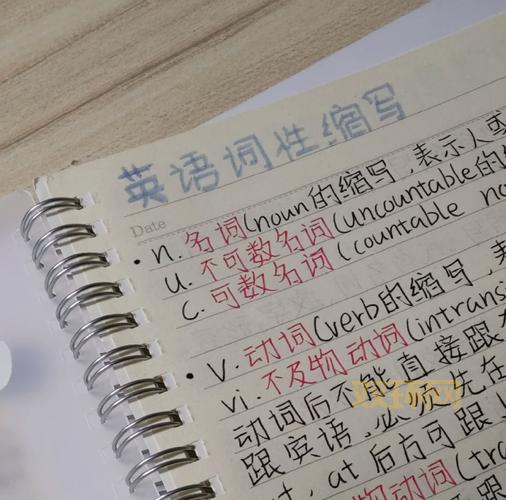 英语词性缩写
Date
n. 名词(noun的缩写,表示人或
u. 不可数名词(uncountable的
c. 可数名词(countable no
v. 动词(verb的缩写,表
vi. 不及物动词(intransi
动词后不能直接跟
跟宾语,必须先在
at 后方可跟
物动词(tra